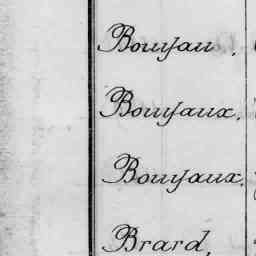 Boujau.
Boujaux.
Boujaux.
Brard.